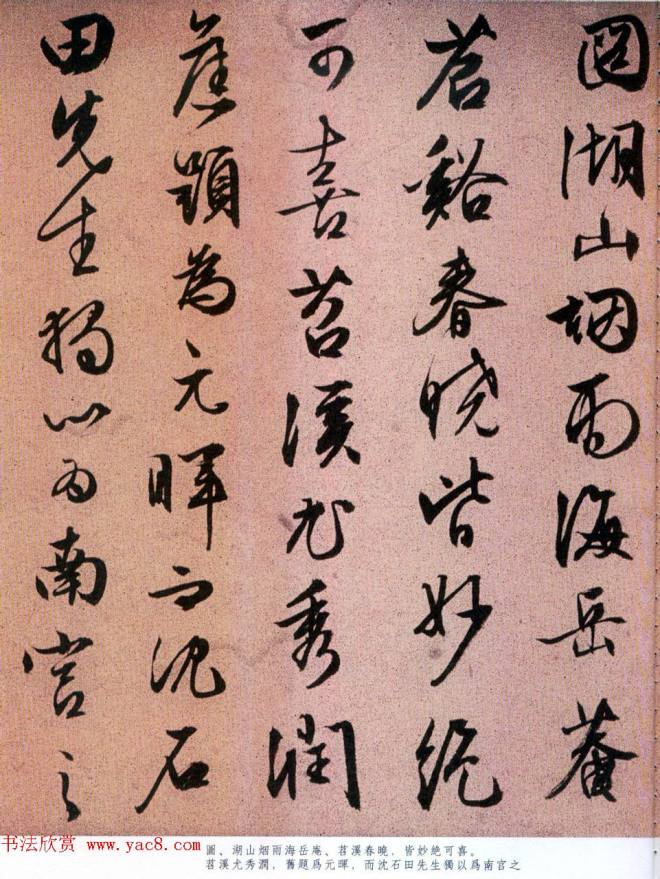 圖湖山烟雨海岳菴
苕谿春曉皆妙絶
可喜苕溪尤秀潤
舊題為元暉而沈石
田先生獨以為南宫之
圖、湖山烟雨海岳庵、苕溪春曉，皆妙絶可喜。
苕溪尤秀潤，舊題爲元暉，而沈石田先生獨以爲南宫之
书法欣赏 www.yac8.com